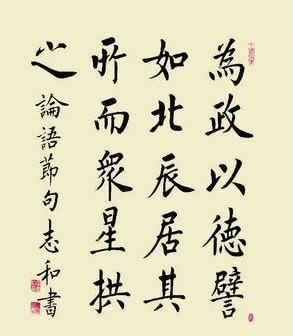 為政以德譬
如北辰居其
所而衆星拱
之
論語節句志和書